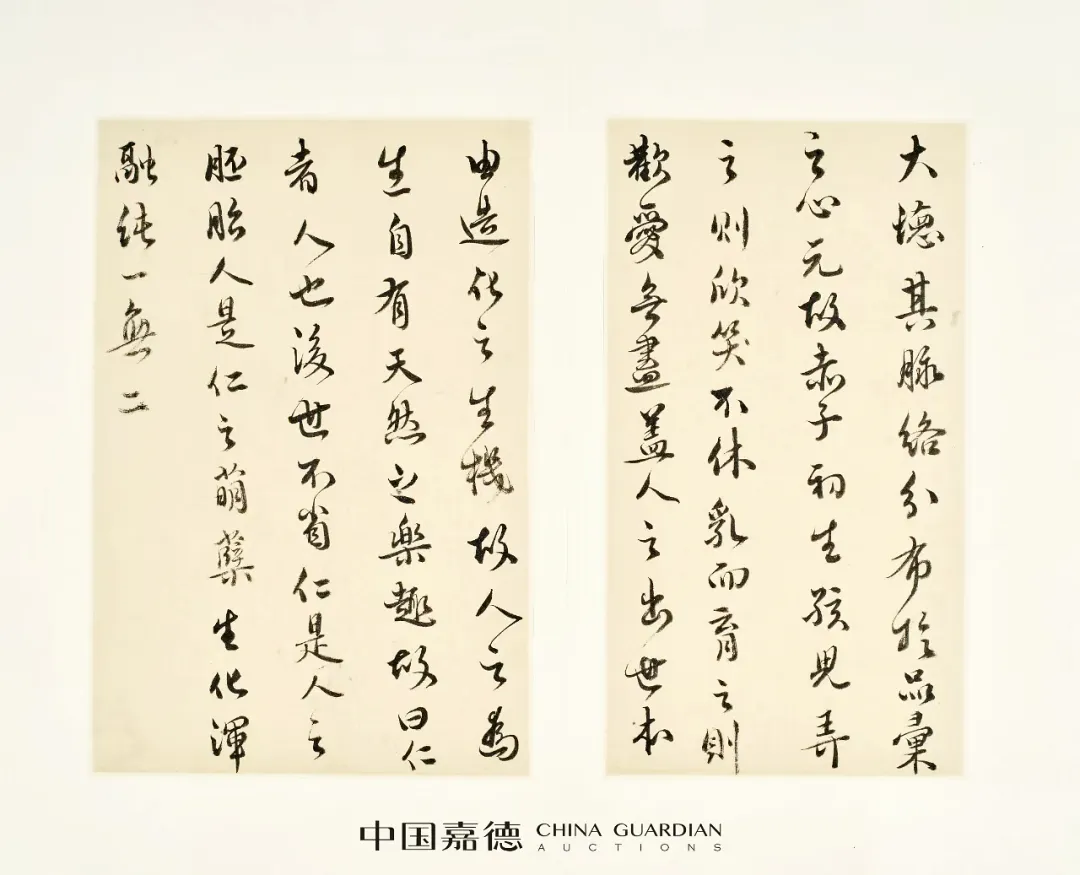 大德其脉絡分布於品彙
之心元故赤子初生孩兒弄
之則欣笑不休乳而育之則
歡愛無盡蓋人之出世本
由造化之生機故人之為
生自有天然之樂趣故曰仁
者人也後世不省仁是人之
胚胎人是仁之萌蘖生化渾
融純一無二
中国嘉德 CHINA GUARDIAN
AUCTIONS